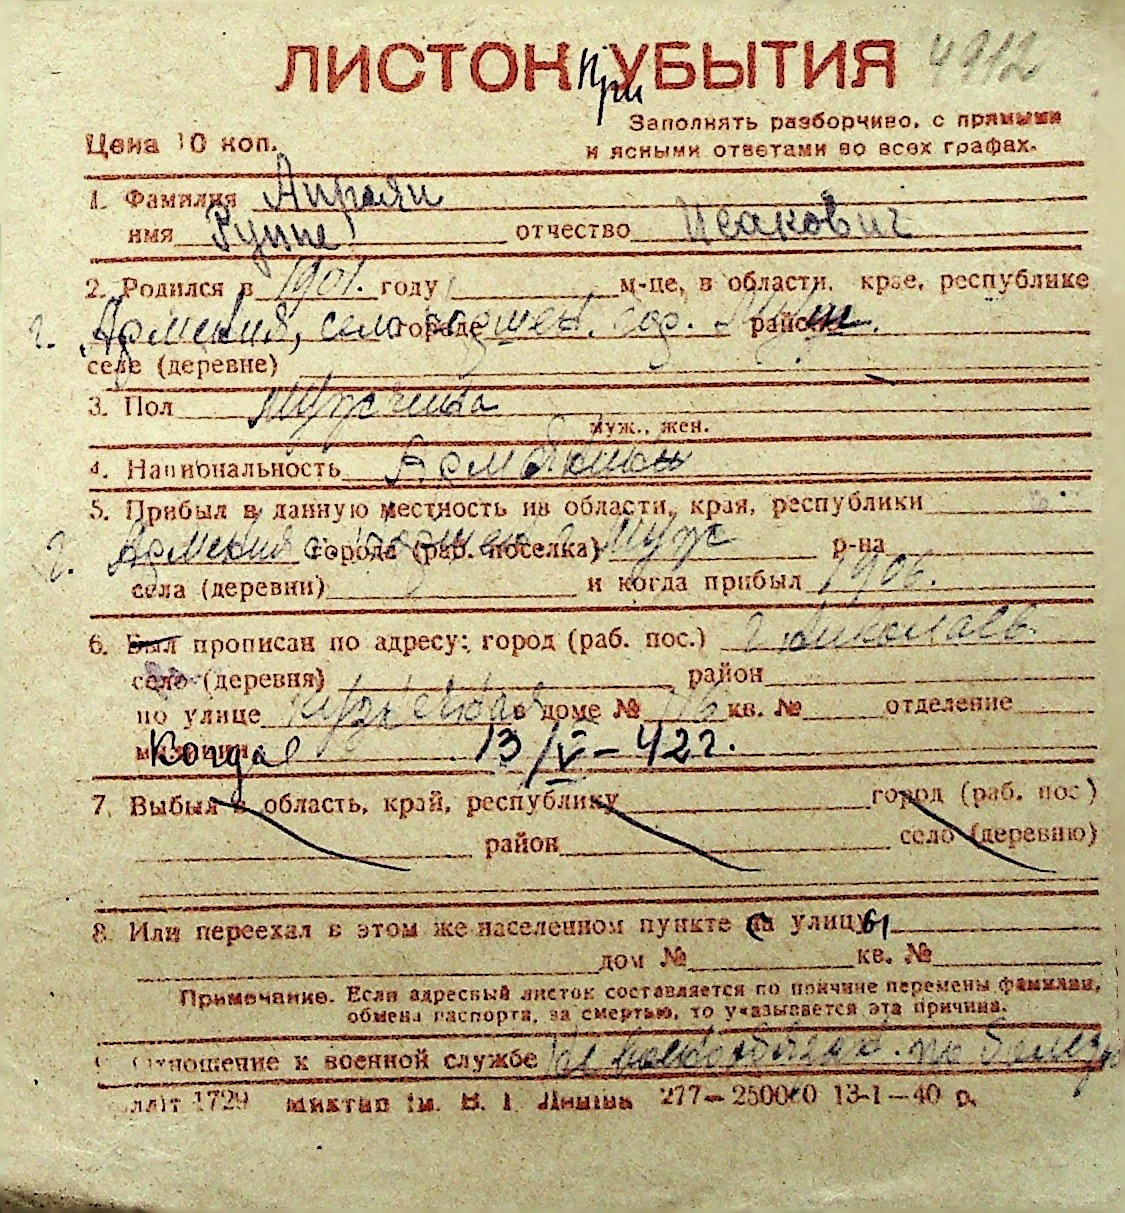 ЛИСТОК При УБЫТИЯ 4912
Заполнять разборчиво, с прямыми
Цена 10 коп.
и ясными ответами во всех графах.
1. Фамилия Апроян
имя отчество Исакович
2. Родился в 1901. году м-це, в области, крае, республике
г. Армения, село городе гор. районе
селе (деревне)
3. Пол Мужчина
муж., жен.
4. Национальность Армянин
5. Прибыл в данную местность из области, края, республики
г. Армения города (раб. поселка) р-на
села (деревни) и когда прибыл 1906.
6. Был прописан по адресу: город (раб. пос.) г. Николаев.
село (деревня) район
по улице в доме № кв. № отделение
милиции Когда 13/V-42г.
7. Выбыл в область, край, республику город (раб. пос)
район село (деревню)
8. Или переехал в этом же населенном пункте с улицы
дом № кв. №
Примечание. Если адресный листок составляется по причине перемены фамилии,
обмена паспорта, за смертью, то указывается эта причина.
Отношение к военной службе по болезни
1729 277-250000 13-1-40 р.